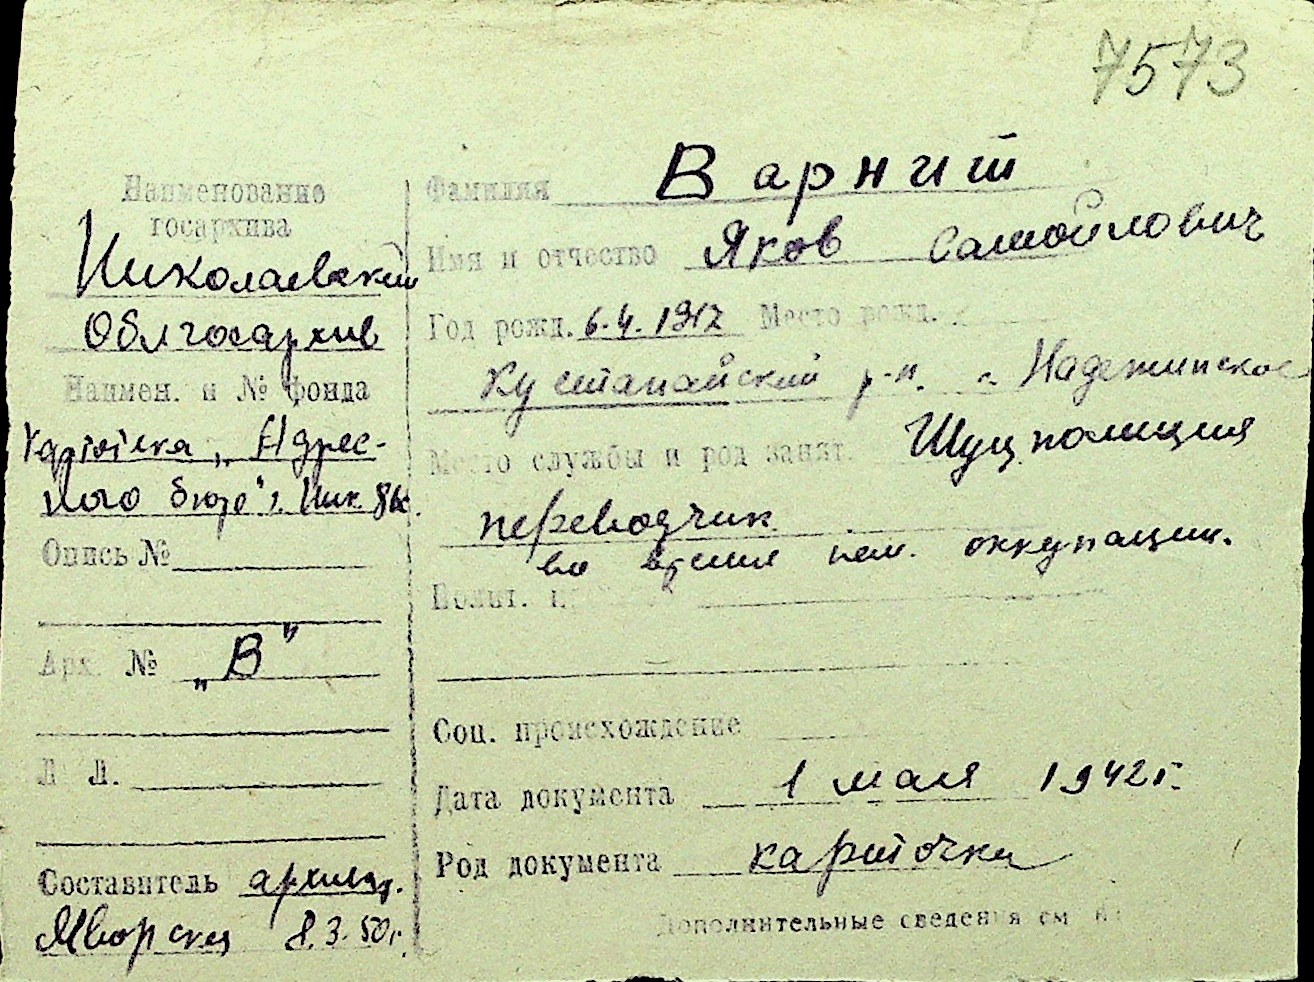 7573
Наименование
госархива
Николаевский
Облгосархив
Наимен. и № фонда
картотека „Адрес-
ного бюро" г. Ник.
Опись №
Арх. № „В"
Л Л.
Составитель архивар.
Яворская 8.3.50г.
Фамилия Варний
Имя и отчество Яков Самойлович
Год рожд. 6.4.1917 Место рожд.
Кустанайский р-н. с. Надежинское
Место службы и род занят. Шуцполиция
переводчик
во время нем. оккупации.
Полит.
Соц. происхождение
Дата документа 1 мая 1942г.
Род документа карточка
Дополнительные сведения см